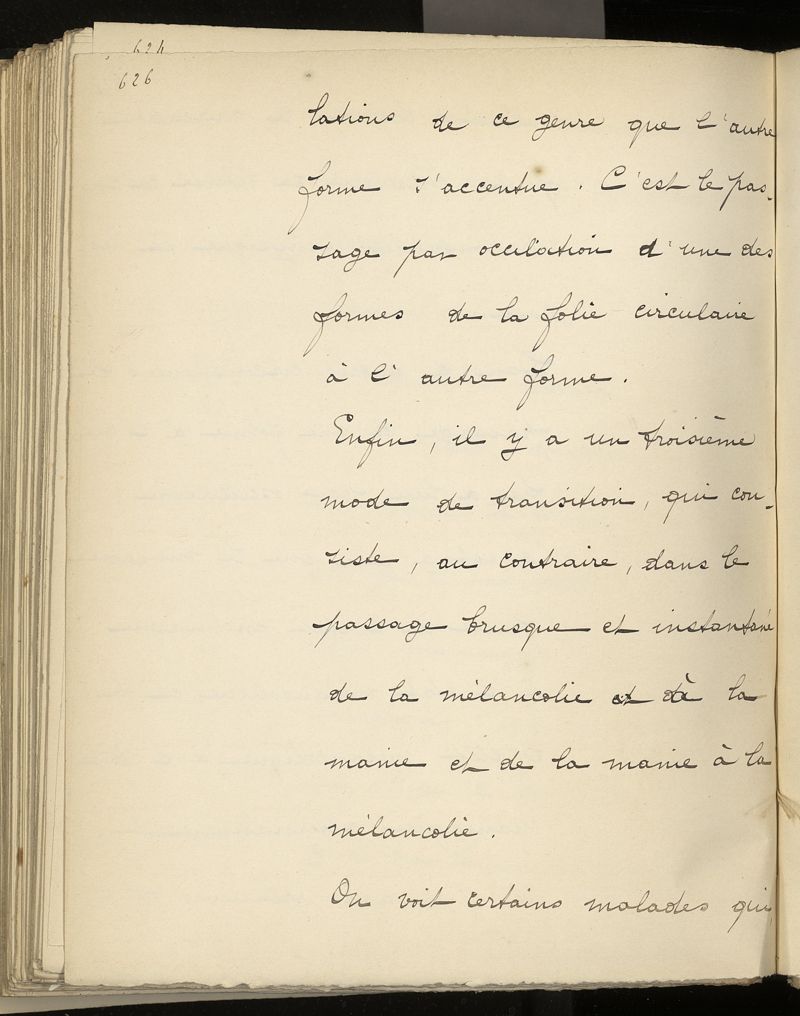 624
626
lations de ce genre que l'autre
forme s'accentue. C'est le pas-
sage par occilation d'une des
formes de la folie circulaire
à l'autre forme.
Enfin, il y a un troisième
mode de transition, qui con-
siste, au contraire, dans le
passage brusque et instantané
de la mélancolie à la
manie et de la manie à la
mélancolie.
On voit certains malades qui,